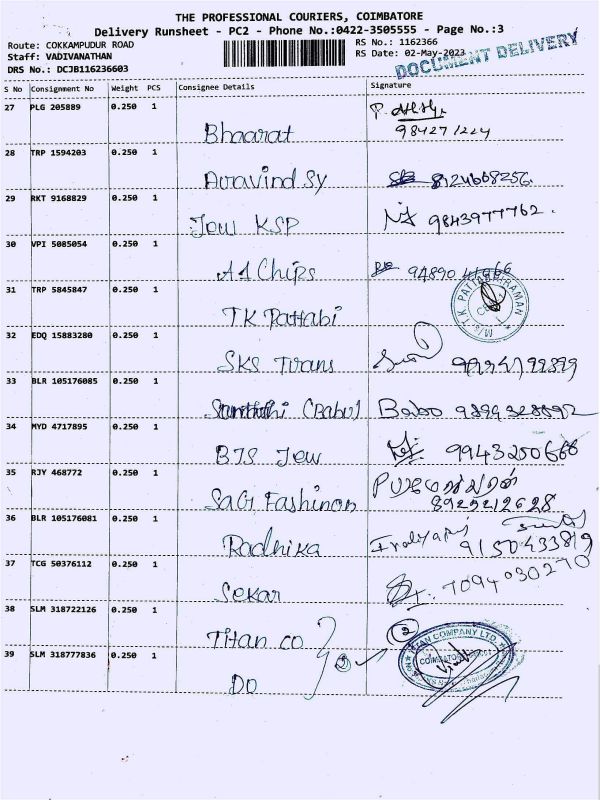 THE PROFESSIONAL COURIERS, COIMBATORE
Delivery Runsheet - PC2 - Phone No.:0422-3505555 - Page No.:3
Route: COKKAMPUDUR ROAD
RS No.: 1162366
Staff: VADIVANATHAN
RS Date: 02-May-2023
DOCUMENT DELIVERY
DRS No.: DCJB116236603
S No Consignment No Weight PCS Consignee Details Signature
27 PLG 205889 0.250 1
Bhaarat 984271224
28 TRP 1594203 0.250 1
Aravind Sy 8124668256
29 RKT 9168829 0.250 1
Jew KSP 9843977762.
30 VPI 5085054 0.250 1
A1 Chips 94890
31 TRP 5845847 0.250 1
TK Pattabi
M/s T.K PATTABHIRAMAN
32 EDQ 15883280 0.250 1
SKS Trans
33 BLR 105176085 0.250 1
(Babu) Babo
34 MYD 4717895 0.250 1
BTS Jew 9943250666
35 RJY 468772 0.250 1
SaGi Fashinon 8925212628
36 BLR 105176081 0.250 1
Radhika 9150433819
37 TCG 50376112 0.250 1
Sekar 7094030270
38 SLM 318722126 0.250 1
Titan co 2
TITAN COMPANY LTD.
39 SLM 318777836 0.250 1
DO 2